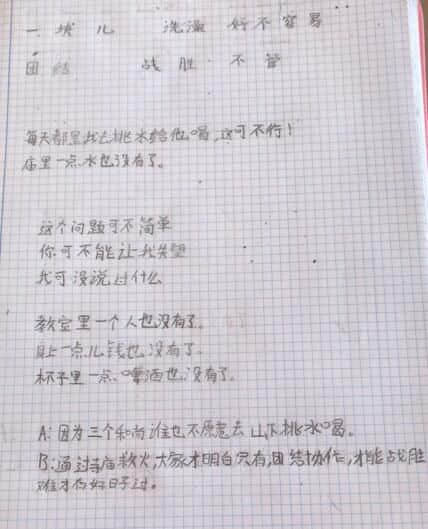 一块儿 洗澡 好不容易
团结 战胜 不管
每天都是我去挑水给他喝,这可不行!
庙里一点水也没有了。
这个问题可不简单
你可不能让我失望
我可没说过什么
教室里一个人也没有了。
身上一点儿钱也没有了。
杯子里一点啤酒也没有了。
A:因为三个和尚谁也不愿意去山下挑水喝。
B:通过寺庙救火,大家才明白只有,团结协作,才能战胜
难才有好日子过。